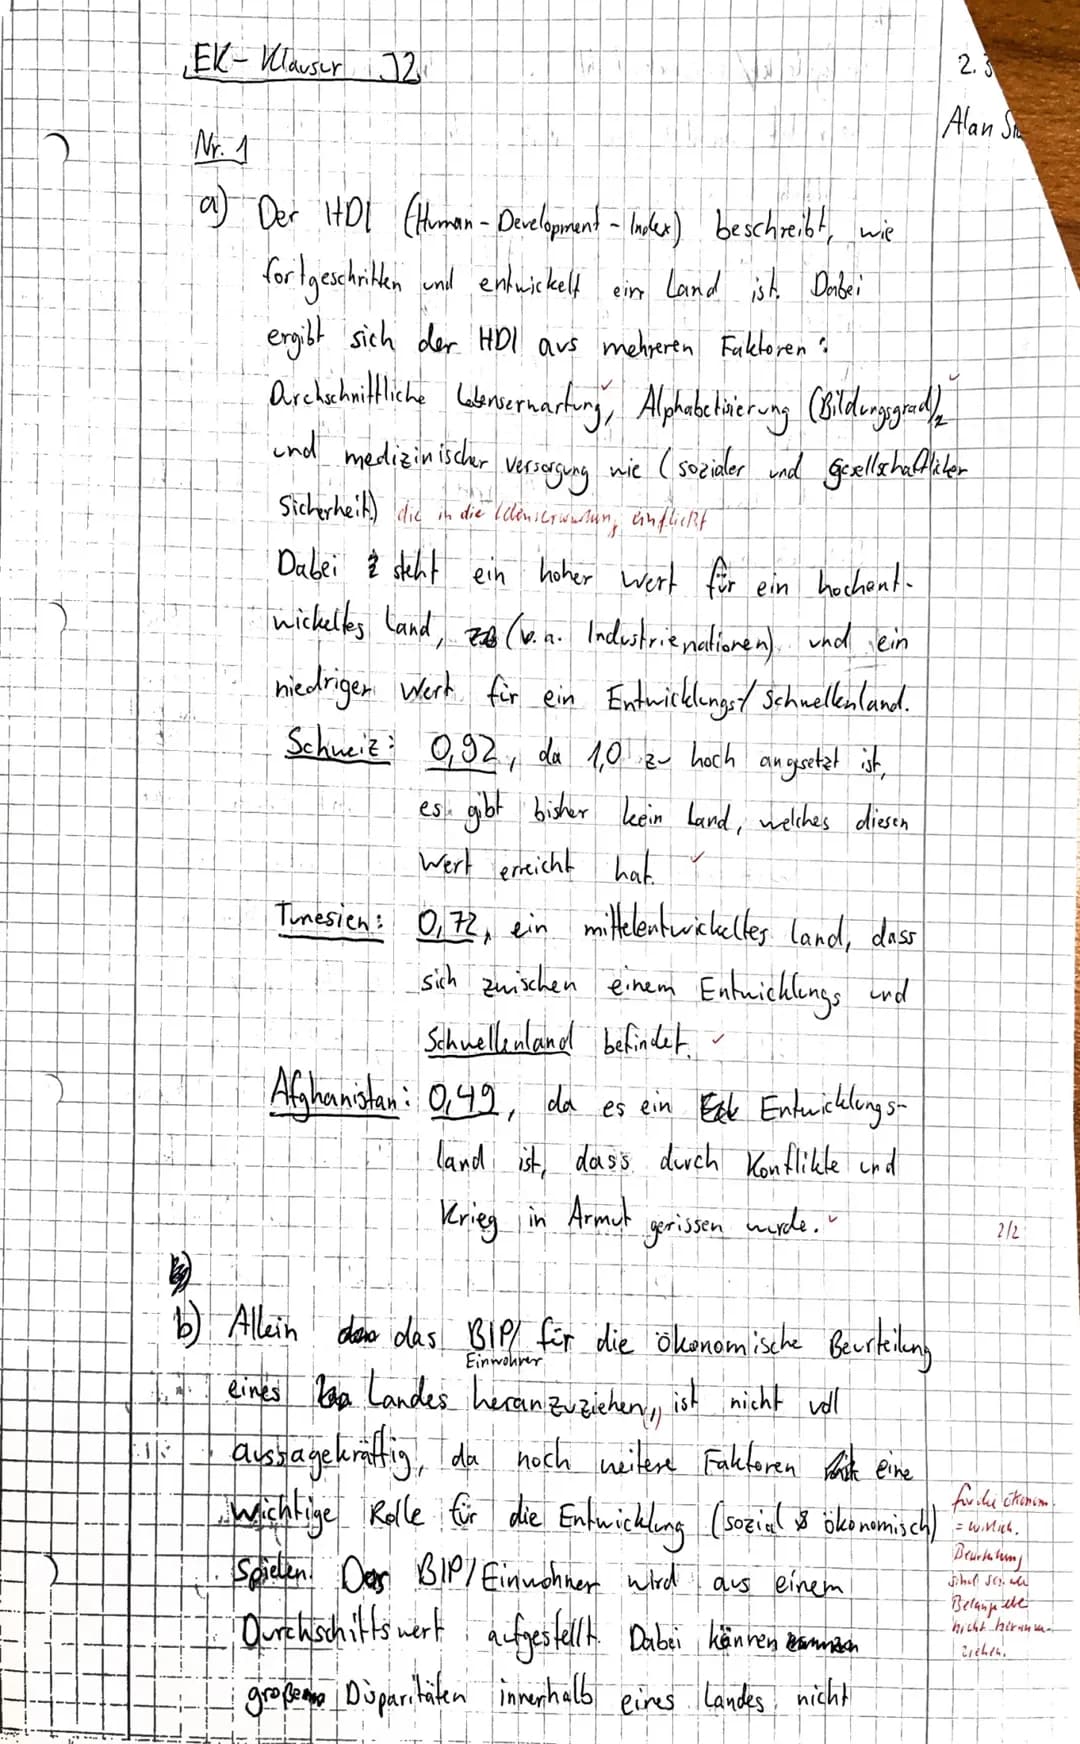 EK- Klausur J2
2.3
Alan
Nr. 1
a) Der HDI (Human-Development-Index) beschreibt, wie
fortgeschritten und entwickelt ein Land ist. Dabei
ergibt sich der HDI aus mehreren Faktoren:
Durchschnittliche Lebenserwartung, Alphabetisierung (Bildungsgrad),
und medizinischer Versorgung wie (sozialer und gesellschaftlicher
Sicherheit) die in die Lebenserwartung einfließt
Dabei steht ein hoher Wert für ein hochent-
wickeltes Land, (v.a. Industrienationen) und ein
niedriger Wert für ein Entwicklungs/Schwellenland.
Schweiz: 0,92, da 1,0 zu hoch angesetzt ist,
es gibt bisher kein Land, welches diesen
Wert erreicht hat.
Tunesien: 0,72, ein mittelentwickeltes Land, dass
sich zwischen einem Entwicklungs und
Schwellenland befindet.
Afghanistan: 0,49, da es ein Entwicklungs-
land ist, dass durch Konflikte und
Krieg in Armut gerissen wurde.
2/2
b) Allein das BIP/ für die ökonomische Beurteilung
Einwohner
eines Landes heranzuziehen, ist nicht voll
aussagekräftig, da noch weitere Faktoren eine
wichtige Rolle für die Entwicklung (sozial & ökonomisch)
spielen. Das BIP/Einwohner wird aus einem
Durchschittswert aufgestellt. Dabei können
große Disparitäten innerhalb eines Landes nicht
für die ökonom.
= wirtsch.
Beurteilung
Belange
nicht heranzu-
ziehen.